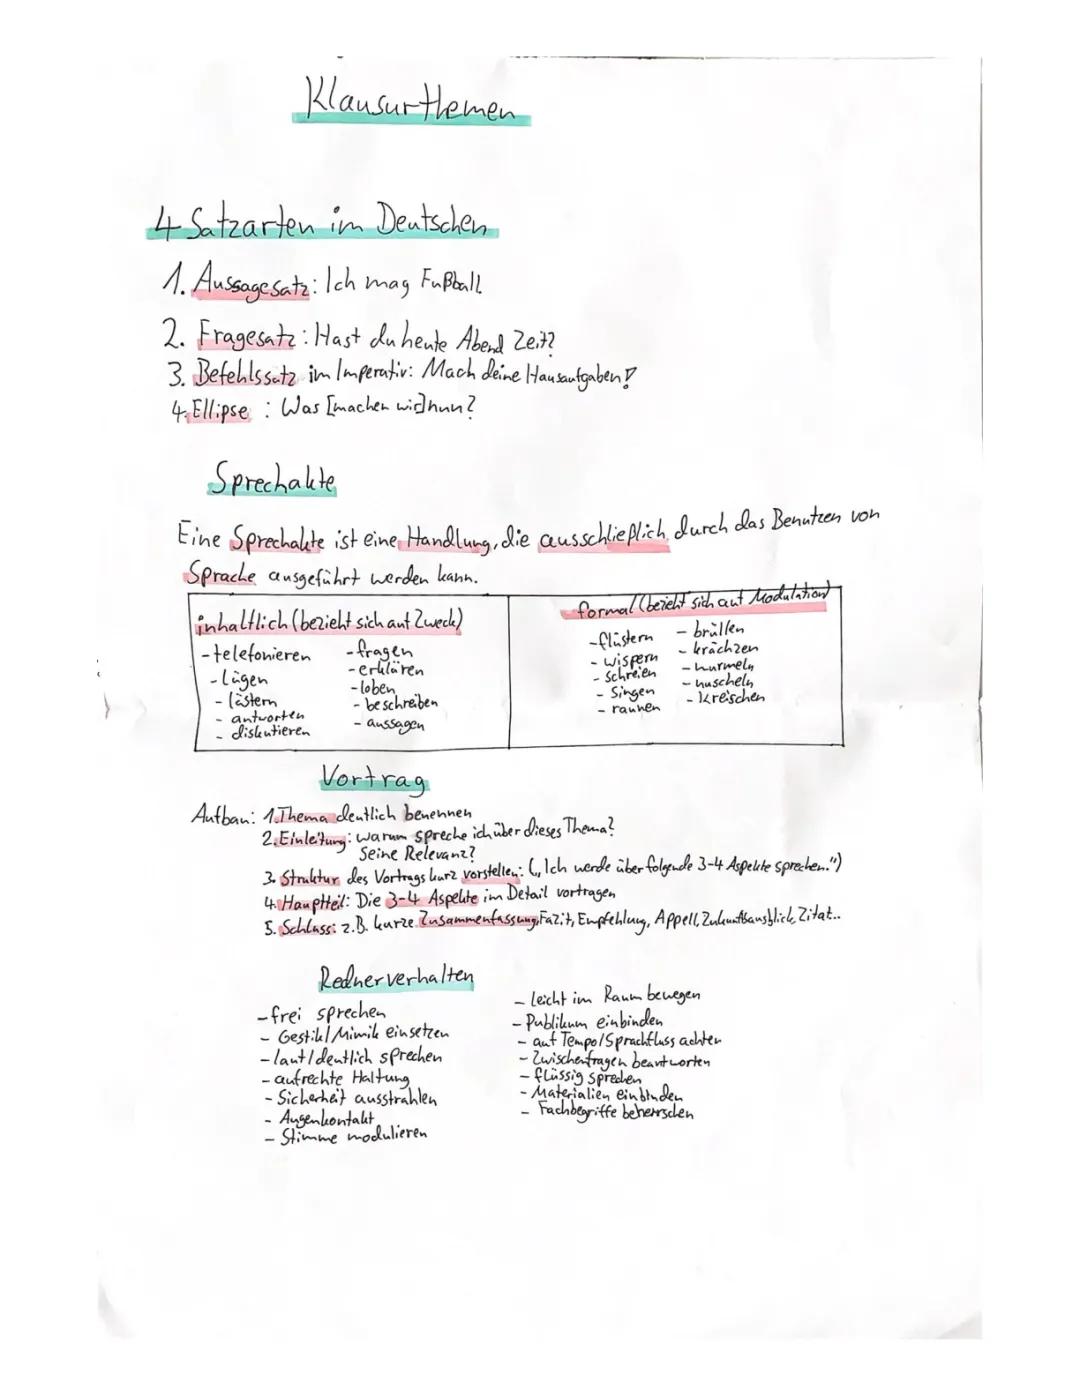 Klausurthemen
4 Satzarten im Deutschen
1. Aussagesatz: Ich mag Fußball
2. Fragesatz: Hast du heute Abend Zeit?
3. Befehlssatz im Imperativ: Mach deine Hausaufgaben!
4. Ellipse : Was [machen wir] nun?
Sprechakte
Eine Sprechakte ist eine Handlung, die ausschließlich durch das Benutzen von
Sprache ausgeführt werden kann.
inhaltlich (bezieht sich auf Zweck)
- telefonieren
- Lügen
- lästern
- antworten
- diskutieren
- fragen
- erklären
- loben
- beschreiben
- aussagen
formal (bezieht sich auf Modulation)
- flüstern
- wispern
- schreien
- Singen
- raunen
- brüllen
- krächzen
- murmeln
- nuscheln
- kreischen
Vortrag
Aufbau: 1. Thema deutlich benennen
2. Einleitung: warum spreche ich über dieses Thema?
Seine Relevanz?
3. Struktur des Vortrags kurz vorstellen: („Ich werde über folgende 3-4 Aspekte sprechen.")
4. Hauptteil: Die 3-4 Aspekte im Detail vortragen
5. Schluss: z.B. kurze Zusammenfassung, Fazit, Empfehlung, Appell, Zukunftsausblick, Zitat..
Rednerverhalten
- frei sprechen
- Gestik/Mimik einsetzen
- laut/deutlich sprechen
- aufrechte Haltung
- Sicherheit ausstrahlen
- Augenkontakt
- Stimme modulieren
- leicht im Raum bewegen
- Publikum einbinden
- auf Tempo/Sprachfluss achten
- Zwischenfragen beantworten
- flüssig sprechen
- Materialien einbinden
- Fachbegriffe beherrschen